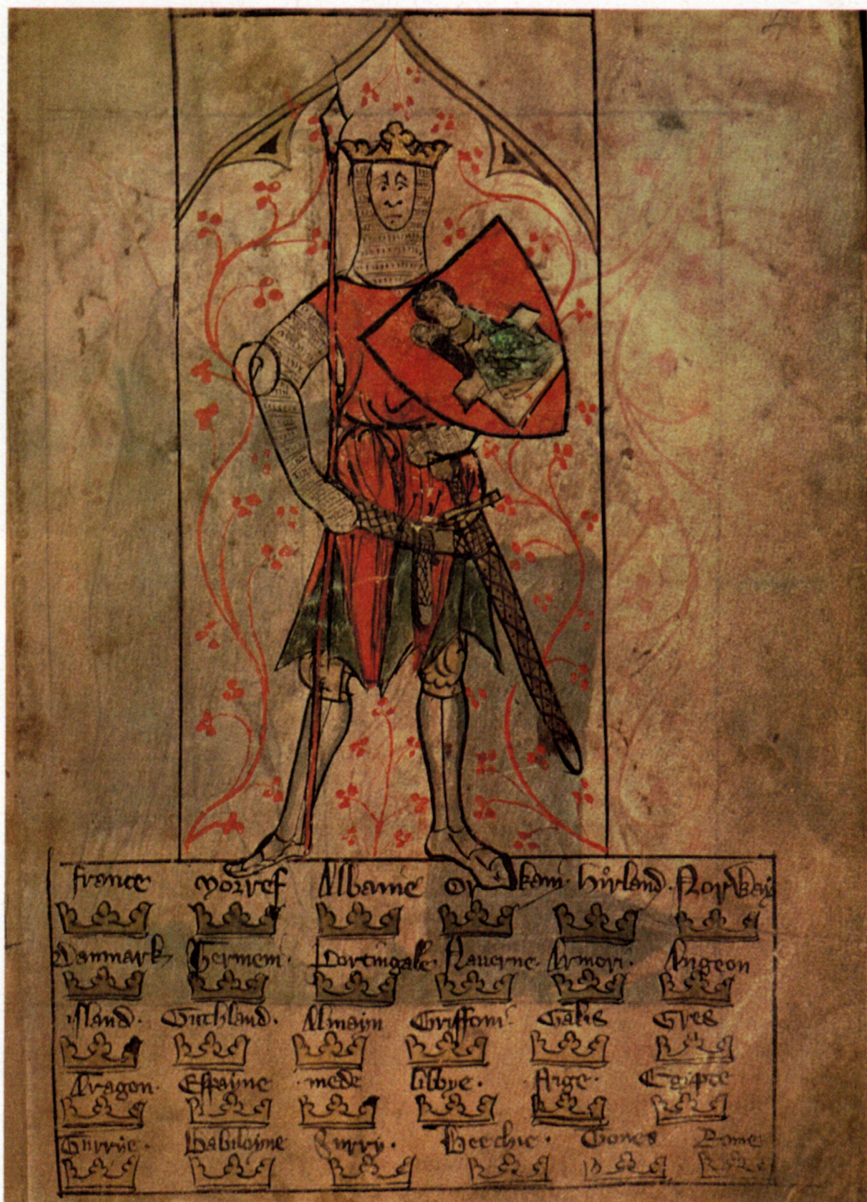 france norref Albanie Or kani hirland Norway
Danmark hermeni Portingale Nauerne Armori Angeon
island Guthland Almayn Griffoni Galis Gres
Aragon Espayne mede libbye Arge Egipte
Surrye Babiloyne Turry Beeche Gones Rome